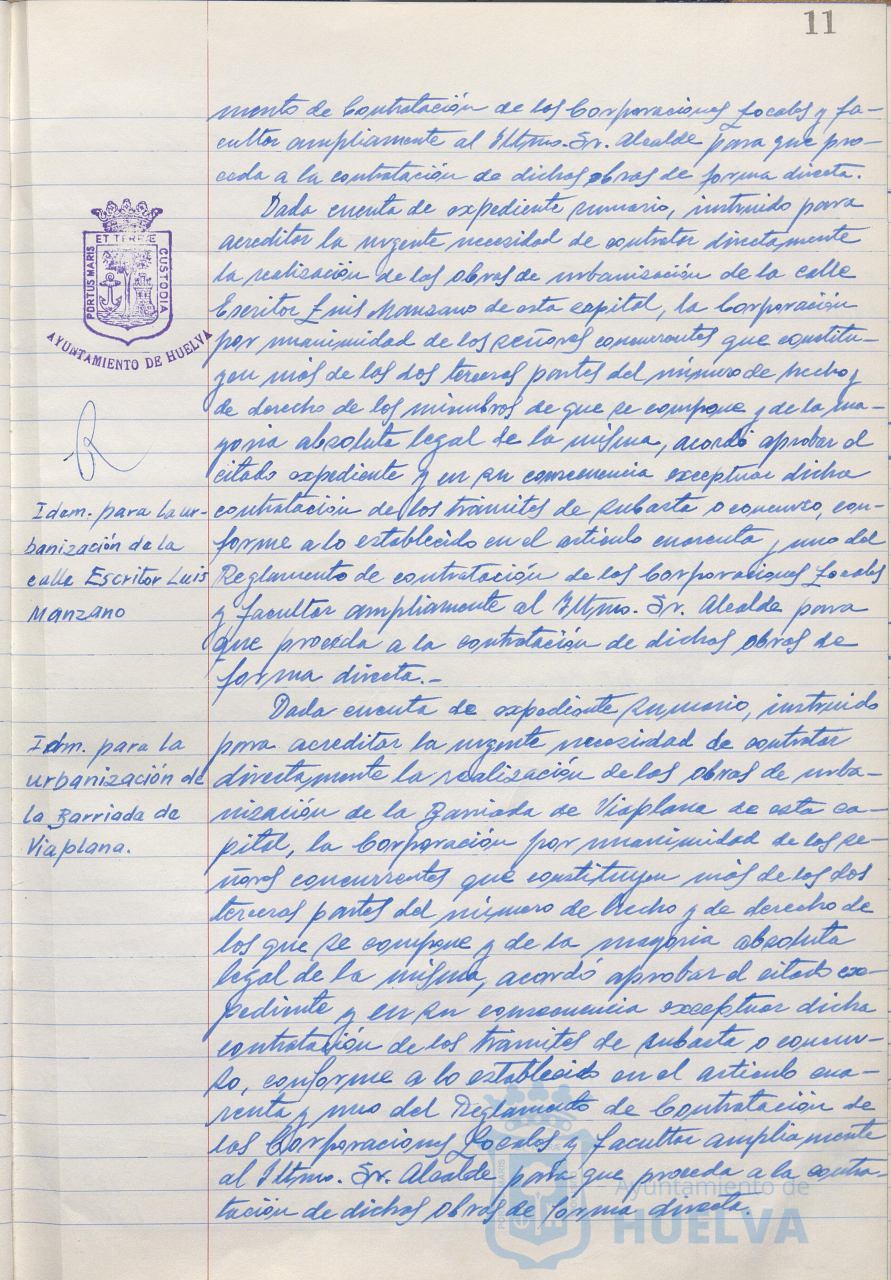 11
mento de Contratación de las Corporaciones Locales y fa-
cultar ampliamente al Iltmo. Sr. Alcalde para que pro-
ceda a la contratación de dichas obras de forma directa.
Dada cuenta de expediente sumario, instruido para
acreditar la urgente necesidad de contratar directamente
la realización de las obras de urbanización de la calle
Escritor Luis Manzano de esta capital, la Corporación
por unanimidad de los señores concurrentes que constitu-
yen más de las dos terceras partes del número de hecho y
de derecho de los miembros de que se compone y de la ma-
yoria absoluta legal de la misma, acordó aprobar el
citado expediente y en su consecuencia exceptuar dicha
contratación de los trámites de subasta o concurso, con-
forme a lo establecido en el articulo cuarenta y uno del
Reglamento de contratación de las Corporaciones Locales
y facultar ampliamente al Iltmo. Sr. Alcalde para
que proceda a la contratación de dichas obras de
forma directa.-
Dada cuenta de expediente sumario, instruido
para acreditar la urgente necesidad de contratar
directamente la realización de las obras de urba-
nización de la Barriada de Viaplana de esta ca-
pital, la Corporación por unanimidad de los se-
ñores concurrentes que constituyen más de las dos
terceras partes del número de hecho y de derecho de
los que se compone y de la mayoria absoluta
legal de la misma, acordó aprobar el citado ex-
pediente y en su consecuencia exceptuar dicha
contratación de los trámites de subasta o concur-
so, conforme a lo establecido en el articulo cua-
renta y uno del Reglamento de Contratación de
las Corporaciones Locales y facultar ampliamente
al Iltmo. Sr. Alcalde para que proceda a la contra-
tación de dichas obras de forma directa.
PORTUS MARIS ET TERRE CUSTODIA
AYUNTAMIENTO DE HUELVA
Idem. para la ur-
banización de la
calle Escritor Luis
Manzano
Idm. para la
urbanización de
la Barriada de
Viaplana.
Ayuntamiento de
HUELVA